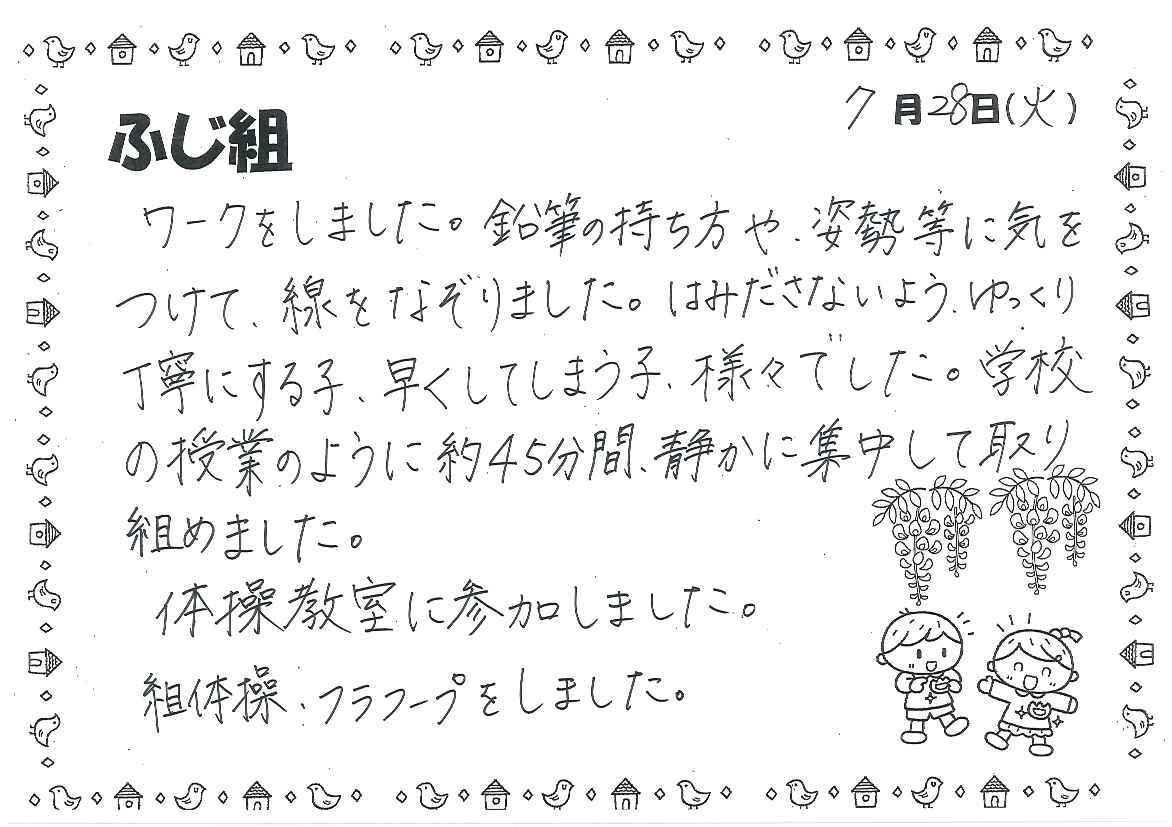 7月28日(火)
ふじ組
ワークをしました。鉛筆の持ち方や、姿勢等に気を
つけて、線をなぞりました。はみださないよう、ゆっくり
丁寧にする子、早くしてしまう子、様々でした。学校
の授業のように約45分間、静かに集中して取り
組めました。
体操教室に参加しました。
組体操、フラフープをしました。